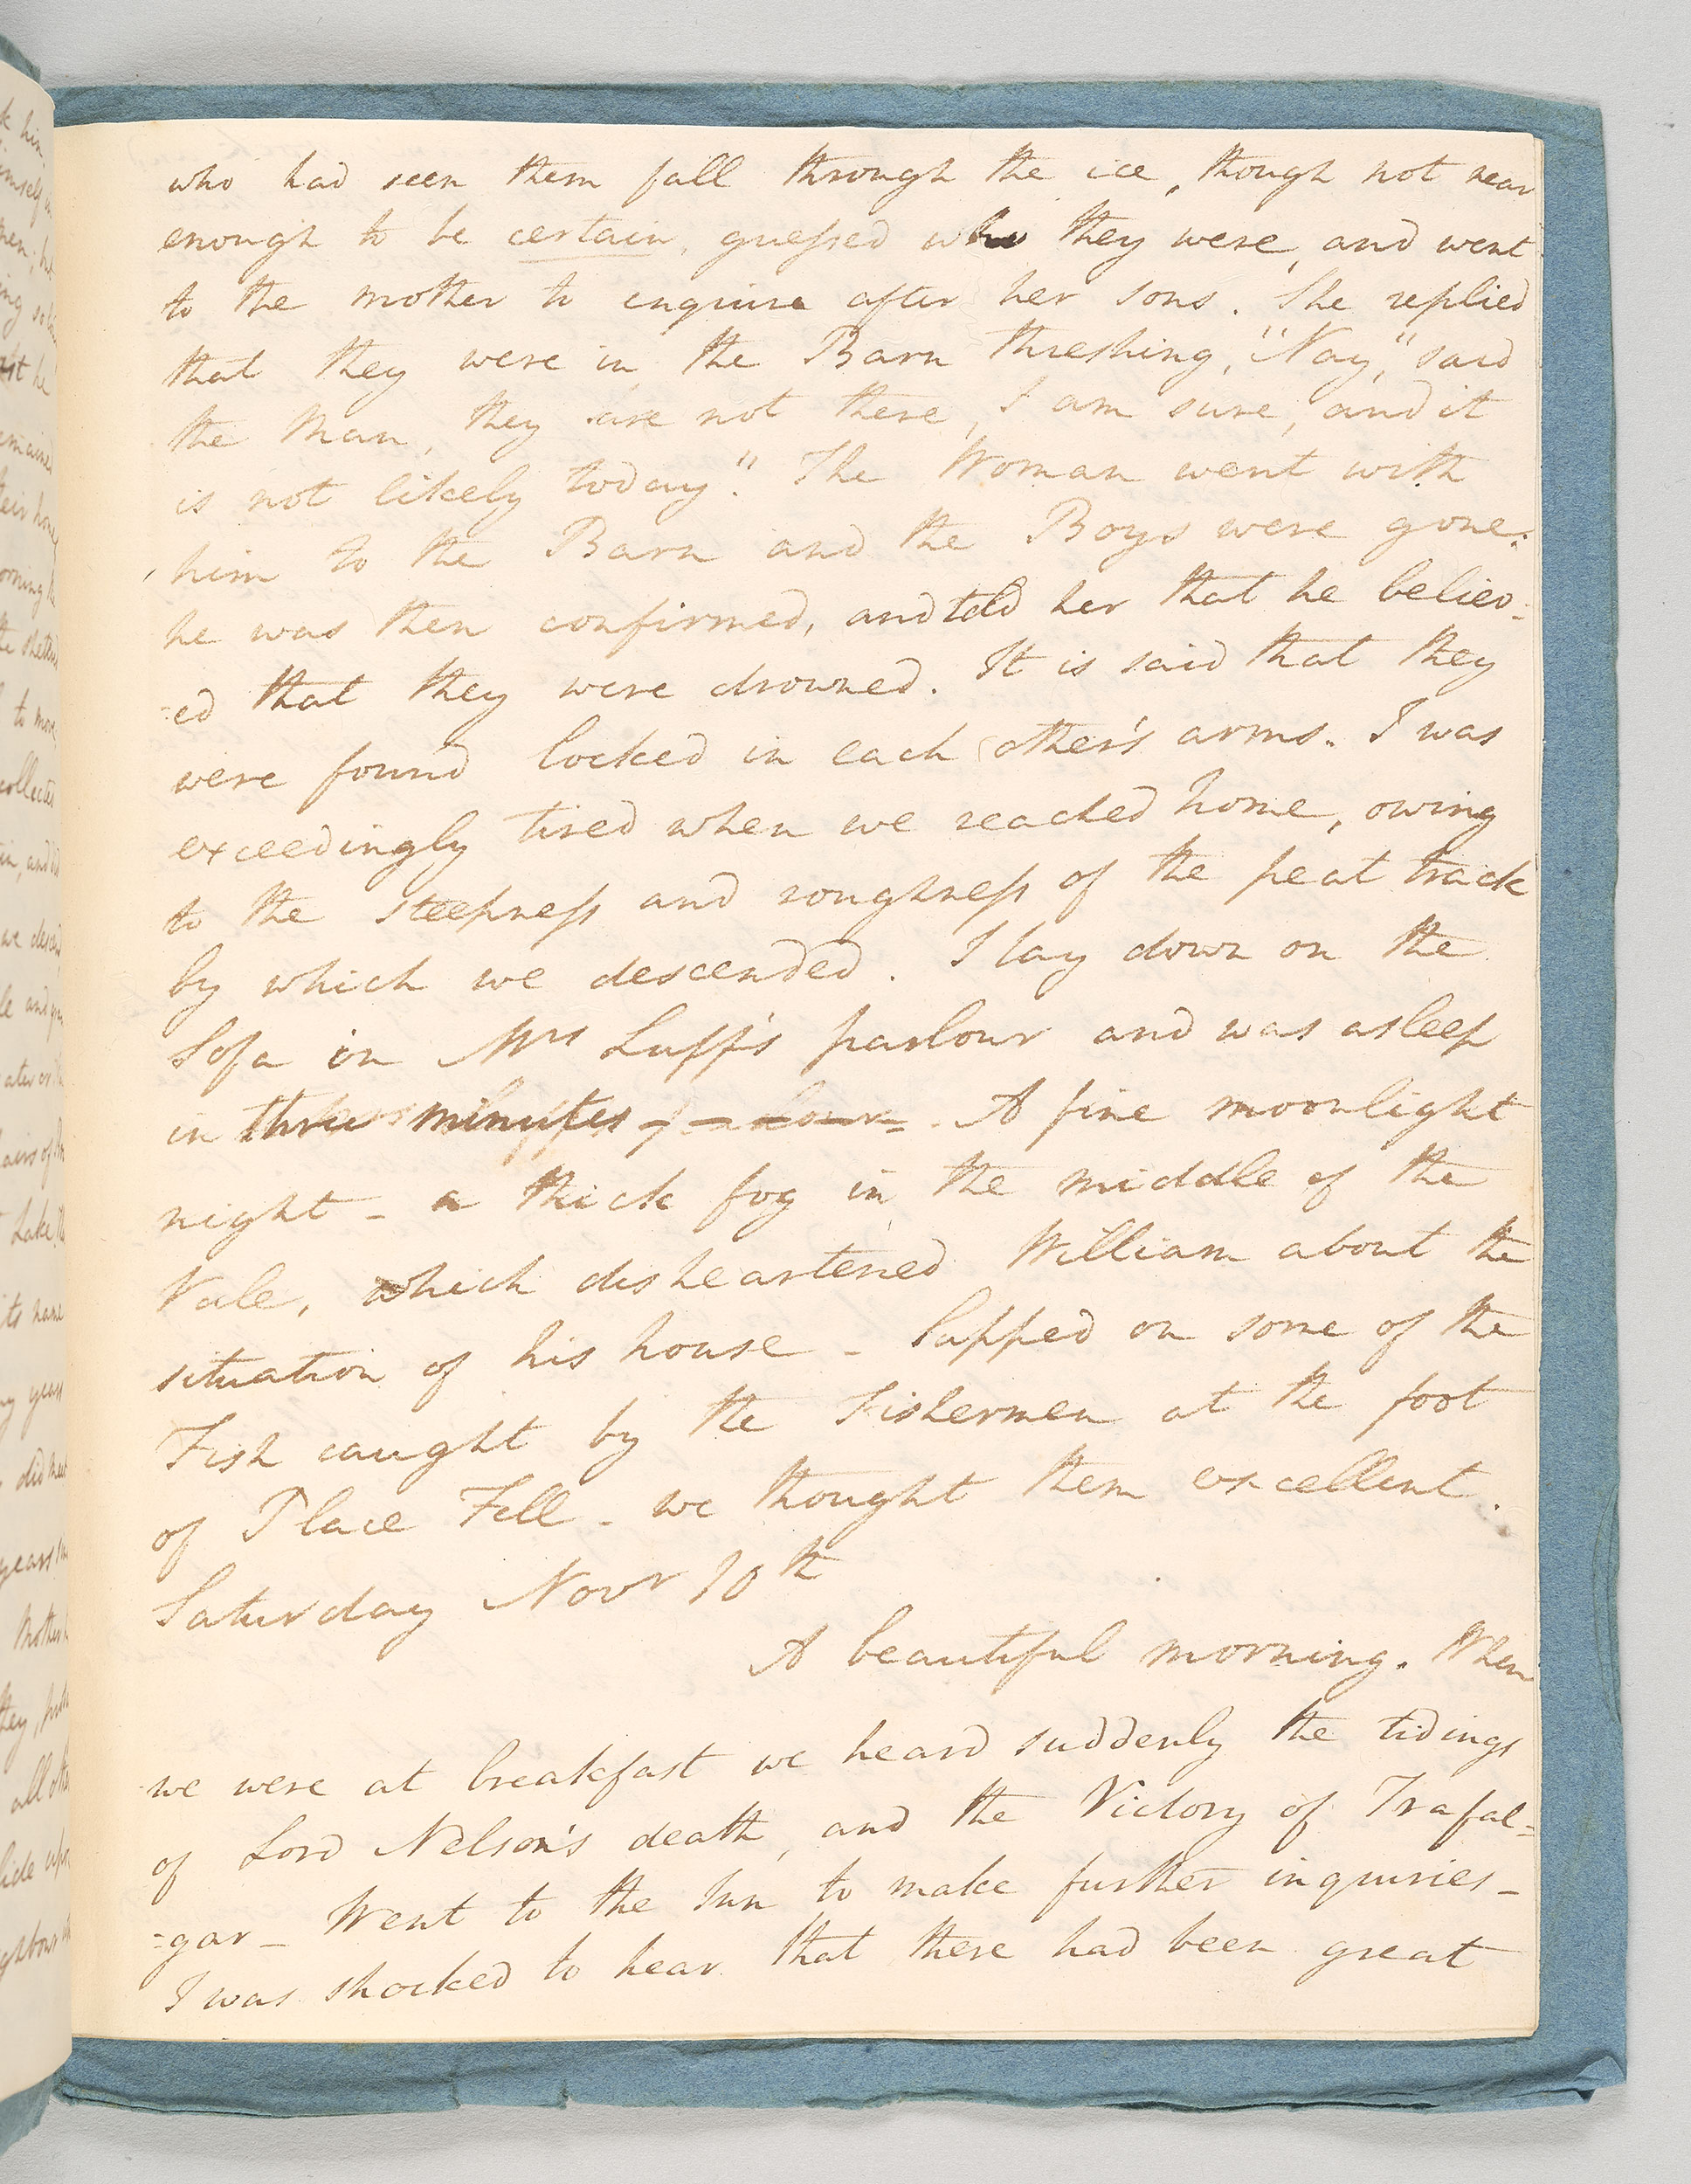 who had seen them fall through the ice, though not near
enough to be certain, guessed who they were, and went
to the mother to enquire after her sons. She replied
that they were in the Barn threshing, "Nay," said
the Man, they are not there, I am sure, and it
is not likely today." The Woman went with
him to the Barn and the Boys were gone.
he was then confirmed, and told her that he believ=
=ed that they were drowned. It is said that they
were found locked in each other's arms. I was
exceedingly tired when we reached home, owing
to the steepness and roughness of the peat track
by which we descended. I lay down on the
Sofa in Mrs Luff's parlour and was asleep
in three minutes. A fine moonlight
night - a thick fog in the middle of the
Vale, which disheartened William about the
situation of his house - Supped on some of the
Fish caught by the Fishermen at the foot
of Place Fell - we thought them excellent.
Saturday Novr 10th
A beautiful morning. When
we were at breakfast we heard suddenly the tidings
of Lord Nelson's death, and the Victory of Trafal=
=gar - Went to the Inn to make further inquiries -
I was shocked to hear that there had been great